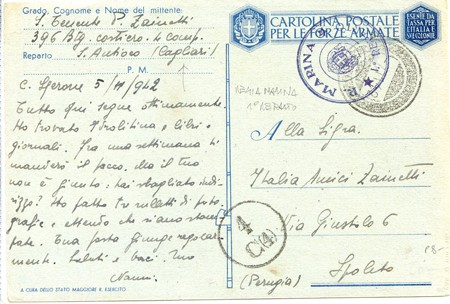 Grado, Cognome e Nome del mittente:
S. Tenente P. Zainetti
396 Btg. costiero. 4 comp.
Reparto S. Antioco (Cagliari)
P. M.
C. Sperone 5/11/942
Tutto qui segue ottimamente.
Ho trovato Idrolitina e libri e
giornali. Fra una settimana ti
manderò il pacco. Ma il tuo
non è giunto; hai sbagliato indi-
rizzo? Ho fatto tre rulletti di foto-
grafie e attendo che siano stam-
pate. Tua posta giunge regolar-
mente. Saluti e baci. Tuo
Nanni.
A CURA DELLO STATO MAGGIORE R. ESERCITO
CARTOLINA POSTALE
PER LE FORZE ARMATE
ESENTE DA
TASSA PER
L'ITALIA E
SVIZZERA
R. MARINA
REGIA MARINA
1° REPARTO
Alla Sig.ra
Italia Amici Zainetti
Via Giustolo 6
Spoleto
(Perugia)
4
C(4)